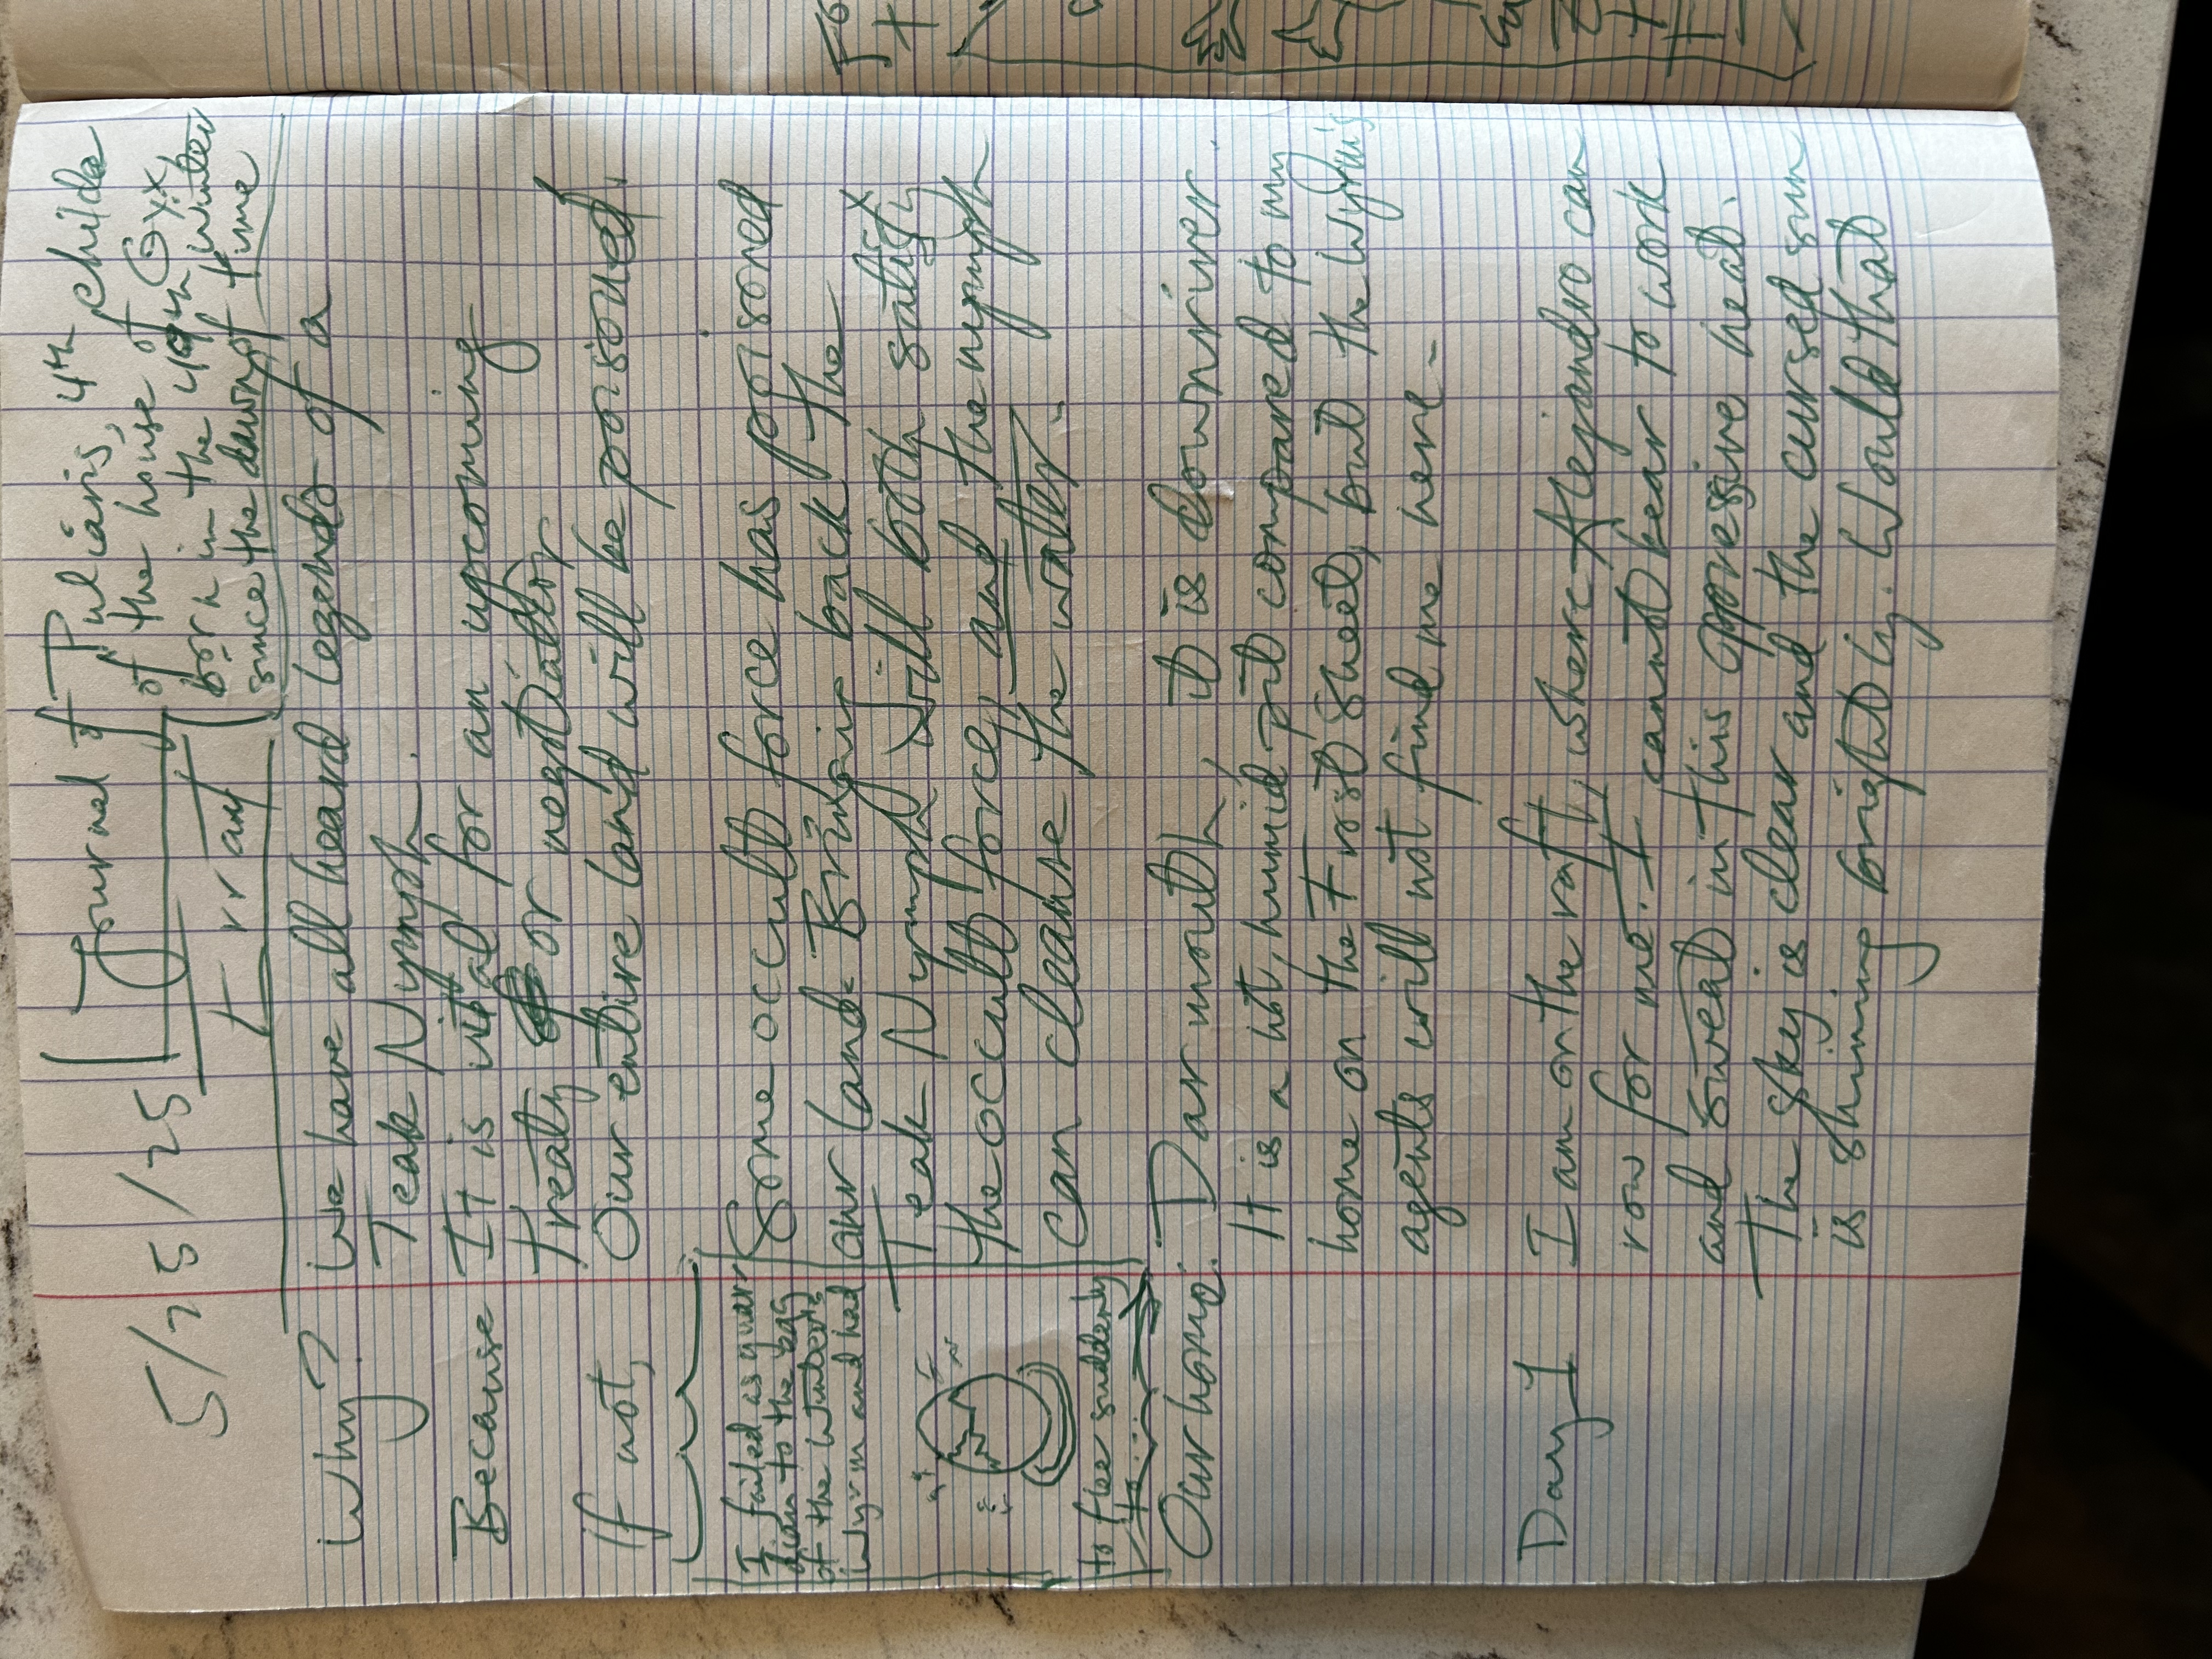 5/25/25
Journal of Pulcianis, 4th childe
of the house of
Errant
(born in the 49th winter
since the dawn of time
Why? We have all heard legends of a
Teak Nymph.
Because It is vital for an upcoming
treaty or negotiation
If not, Our entire land will be poisoned.
I failed as guar
dian to the egg
of the Winter's
wyrm and had
to flee suddenly
to...
Some occult force has poisoned
our land. Bringing back the
Teak Nymph will both satisfy
the occult force, and the nymph
can cleanse the water.
Our home: Darmouth, it is downriver.
It is a hot, humid pit compared to my
home on the Frost Sheet, but the Wyrm's
agents will not find me here.
Day 1 I am on the raft, where Alejandro can
row for me. I cannot bear to work
and sweat in this oppressive heat.
The sky is clear and the cursed sun
is shining brightly. Would that